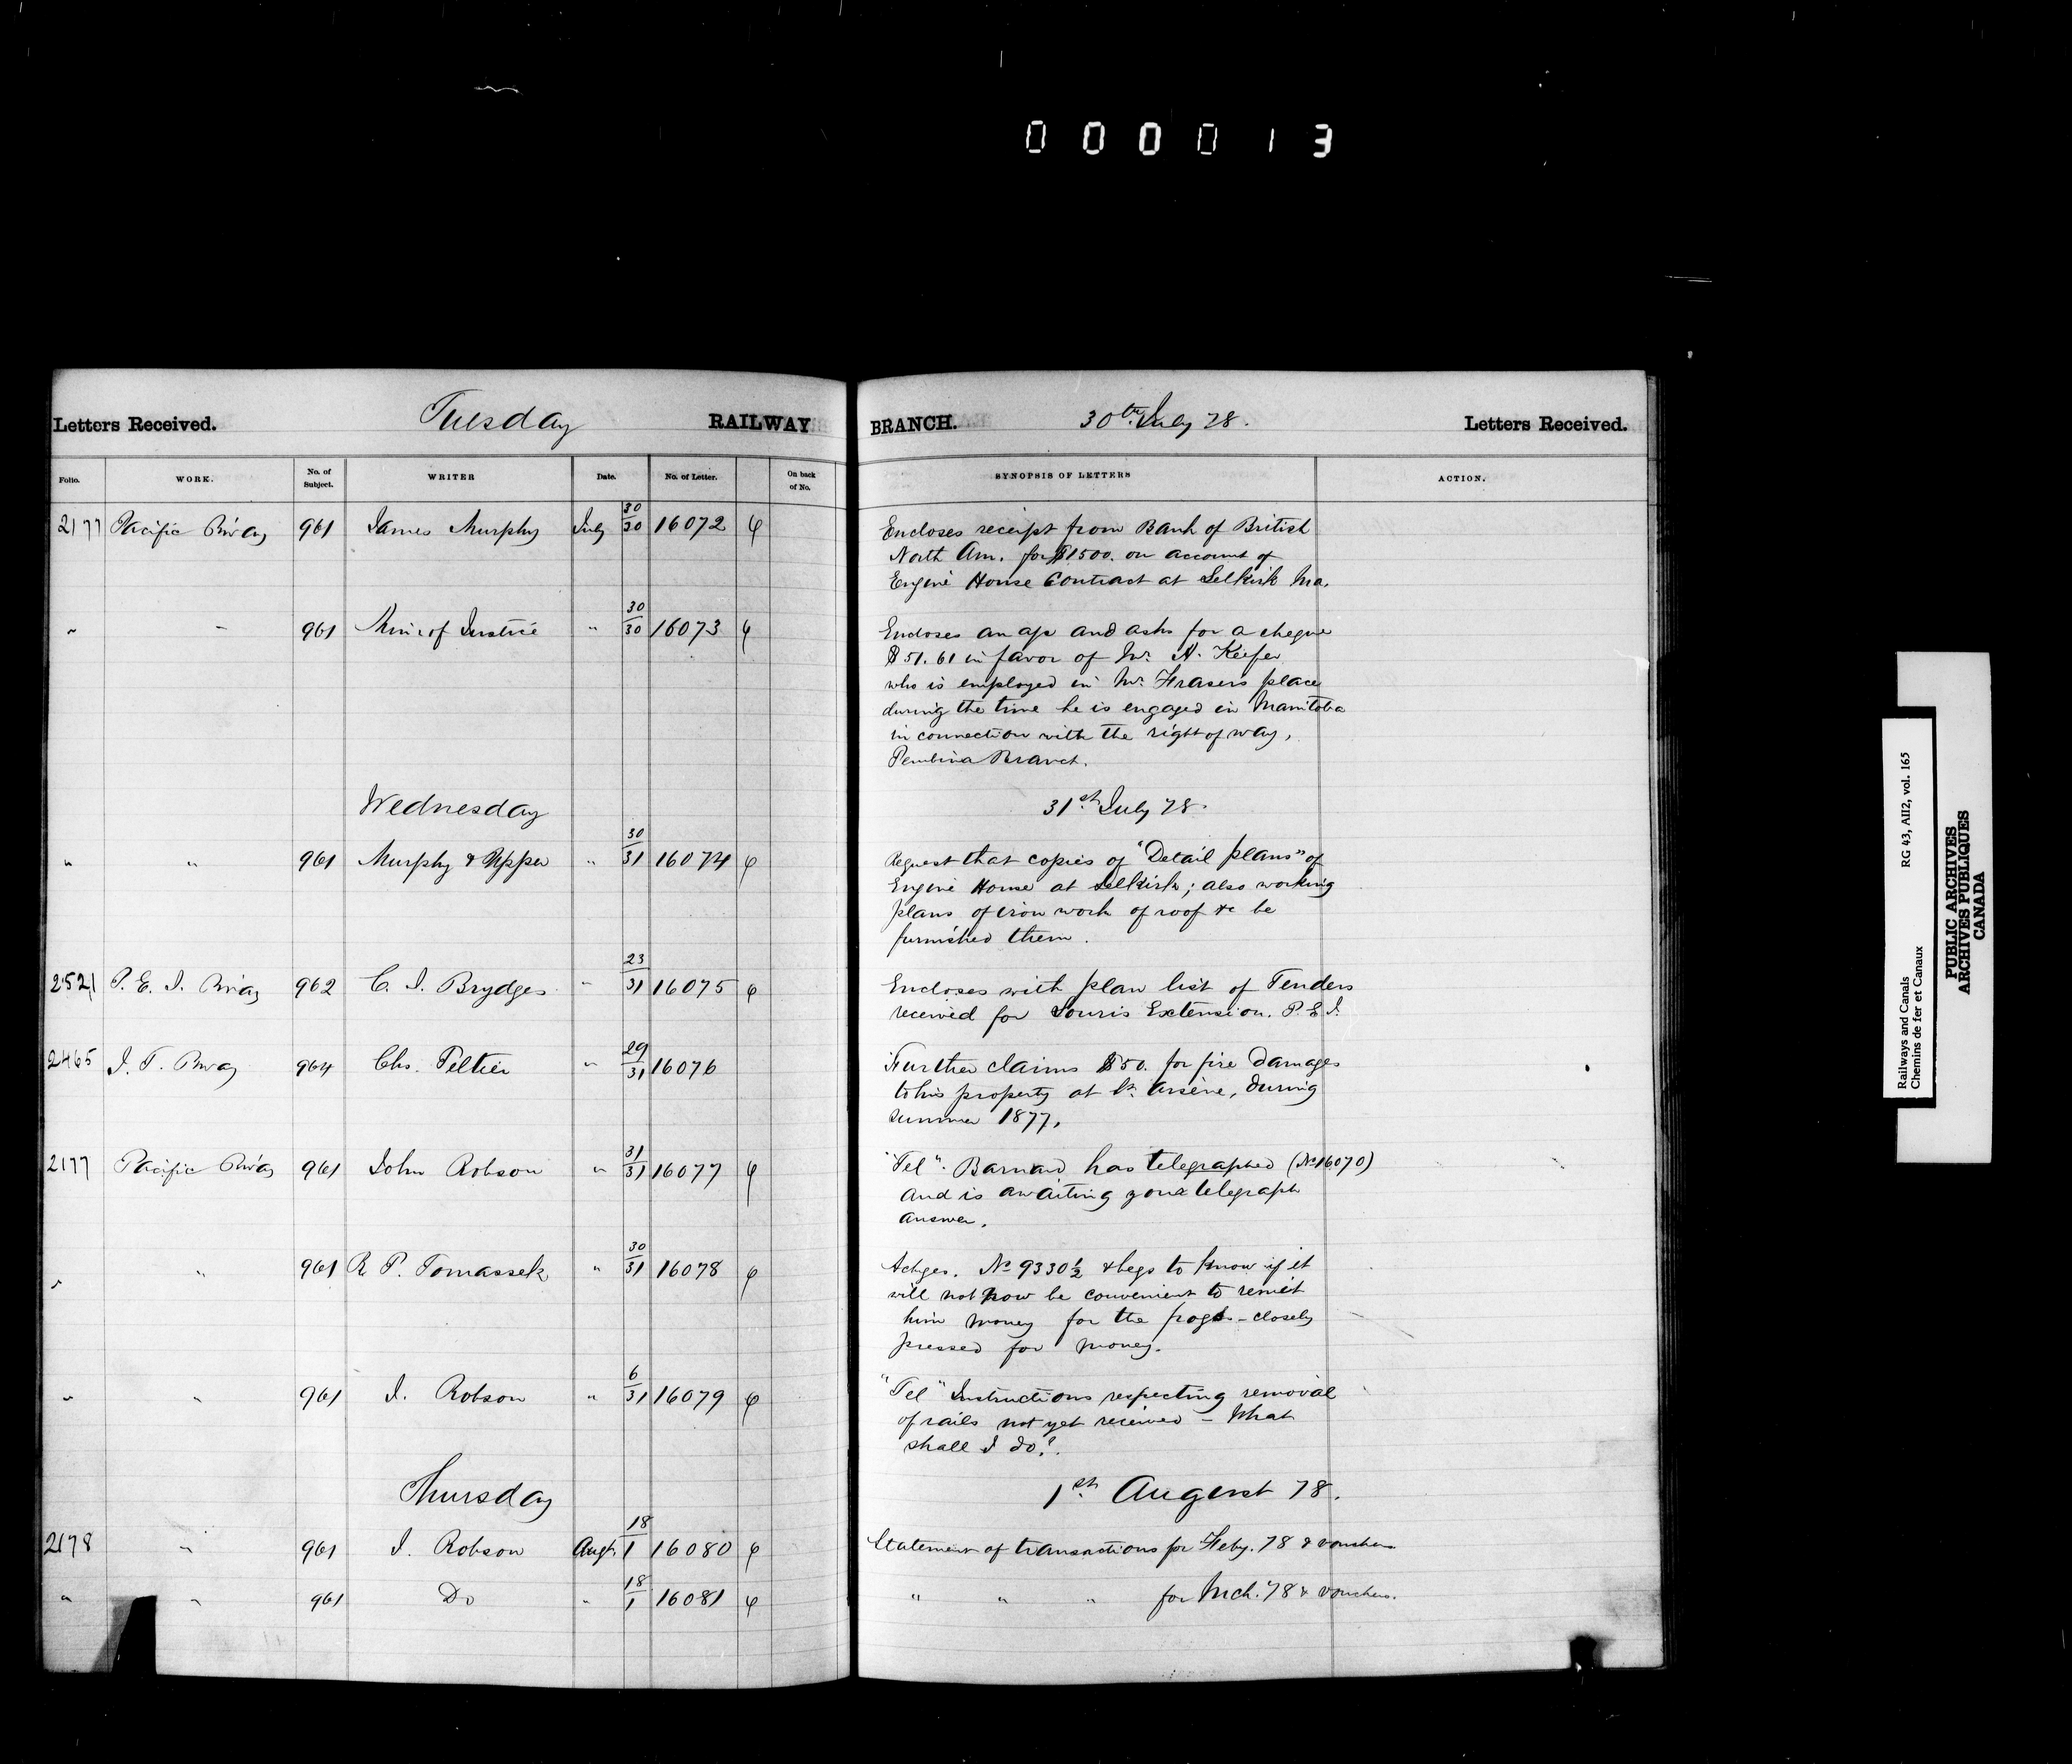 000013
Letters Received. Tuesday RAILWAY BRANCH. 30th July 78. Letters Received.
Folio. WORK. No. of Subject. WRITER Date. No. of Letter. On back of No. SYNOPSIS OF LETTERS ACTION.
2177 Pacific Rway 961 James Murphy July 30/30 16072 Encloses receipt from Bank of British
North Am. for $1500. on account of
Engine House Contract at Selkirk Ma.
" " 961 Min. of Justice " 30/30 16073 Encloses an a/c and asks for a cheque
$51.61 in favor of Mr. A. Keefer
who is employed in Mr. Frasers place
during the time he is engaged in Manitoba
in connection with the right of way,
Pembina Branch.
Wednesday 31st July 78.
" " 961 Murphy & Upper " 30/31 16074 Request that copies of "Detail plans" of
Engine House at Selkirk; also working
plans of iron work of roof &c be
furnished them.
2521 P. E. I. Rway 962 C. J. Brydges " 23/31 16075 Encloses with plan list of Tenders
received for Souris Extension. P.E.I.
2465 I. T. Rway 964 Chs. Peltier " 29/31 16076 Further claims $50. for fire damages
to his property at St. Arsène, during
summer 1877.
2177 Pacific Rway 961 John Robson " 31/31 16077 "Tel". Barnard has telegraphed (No 16070)
and is awaiting your telegraph
answer.
" " 961 R P. Tomassek " 30/31 16078 Ackges. No 9330½ & begs to know if it
will not now be convenient to remit
him money for the frogs - closely
pressed for money.
" " 961 J. Robson " 6/31 16079 "Tel" Instructions respecting removal
of rails not yet received - What
shall I do?.
Thursday 1st August 78.
2178 " 961 J. Robson Augt. 18/1 16080 Statement of transactions for Feby. 78 & vouchers
" " 961 Do " 18/1 16081 " " " for Mch. 78 & vouchers.
Railways and Canals RG 43, AII2, vol. 165
Chemins de fer et Canaux
PUBLIC ARCHIVES
ARCHIVES PUBLIQUES
CANADA